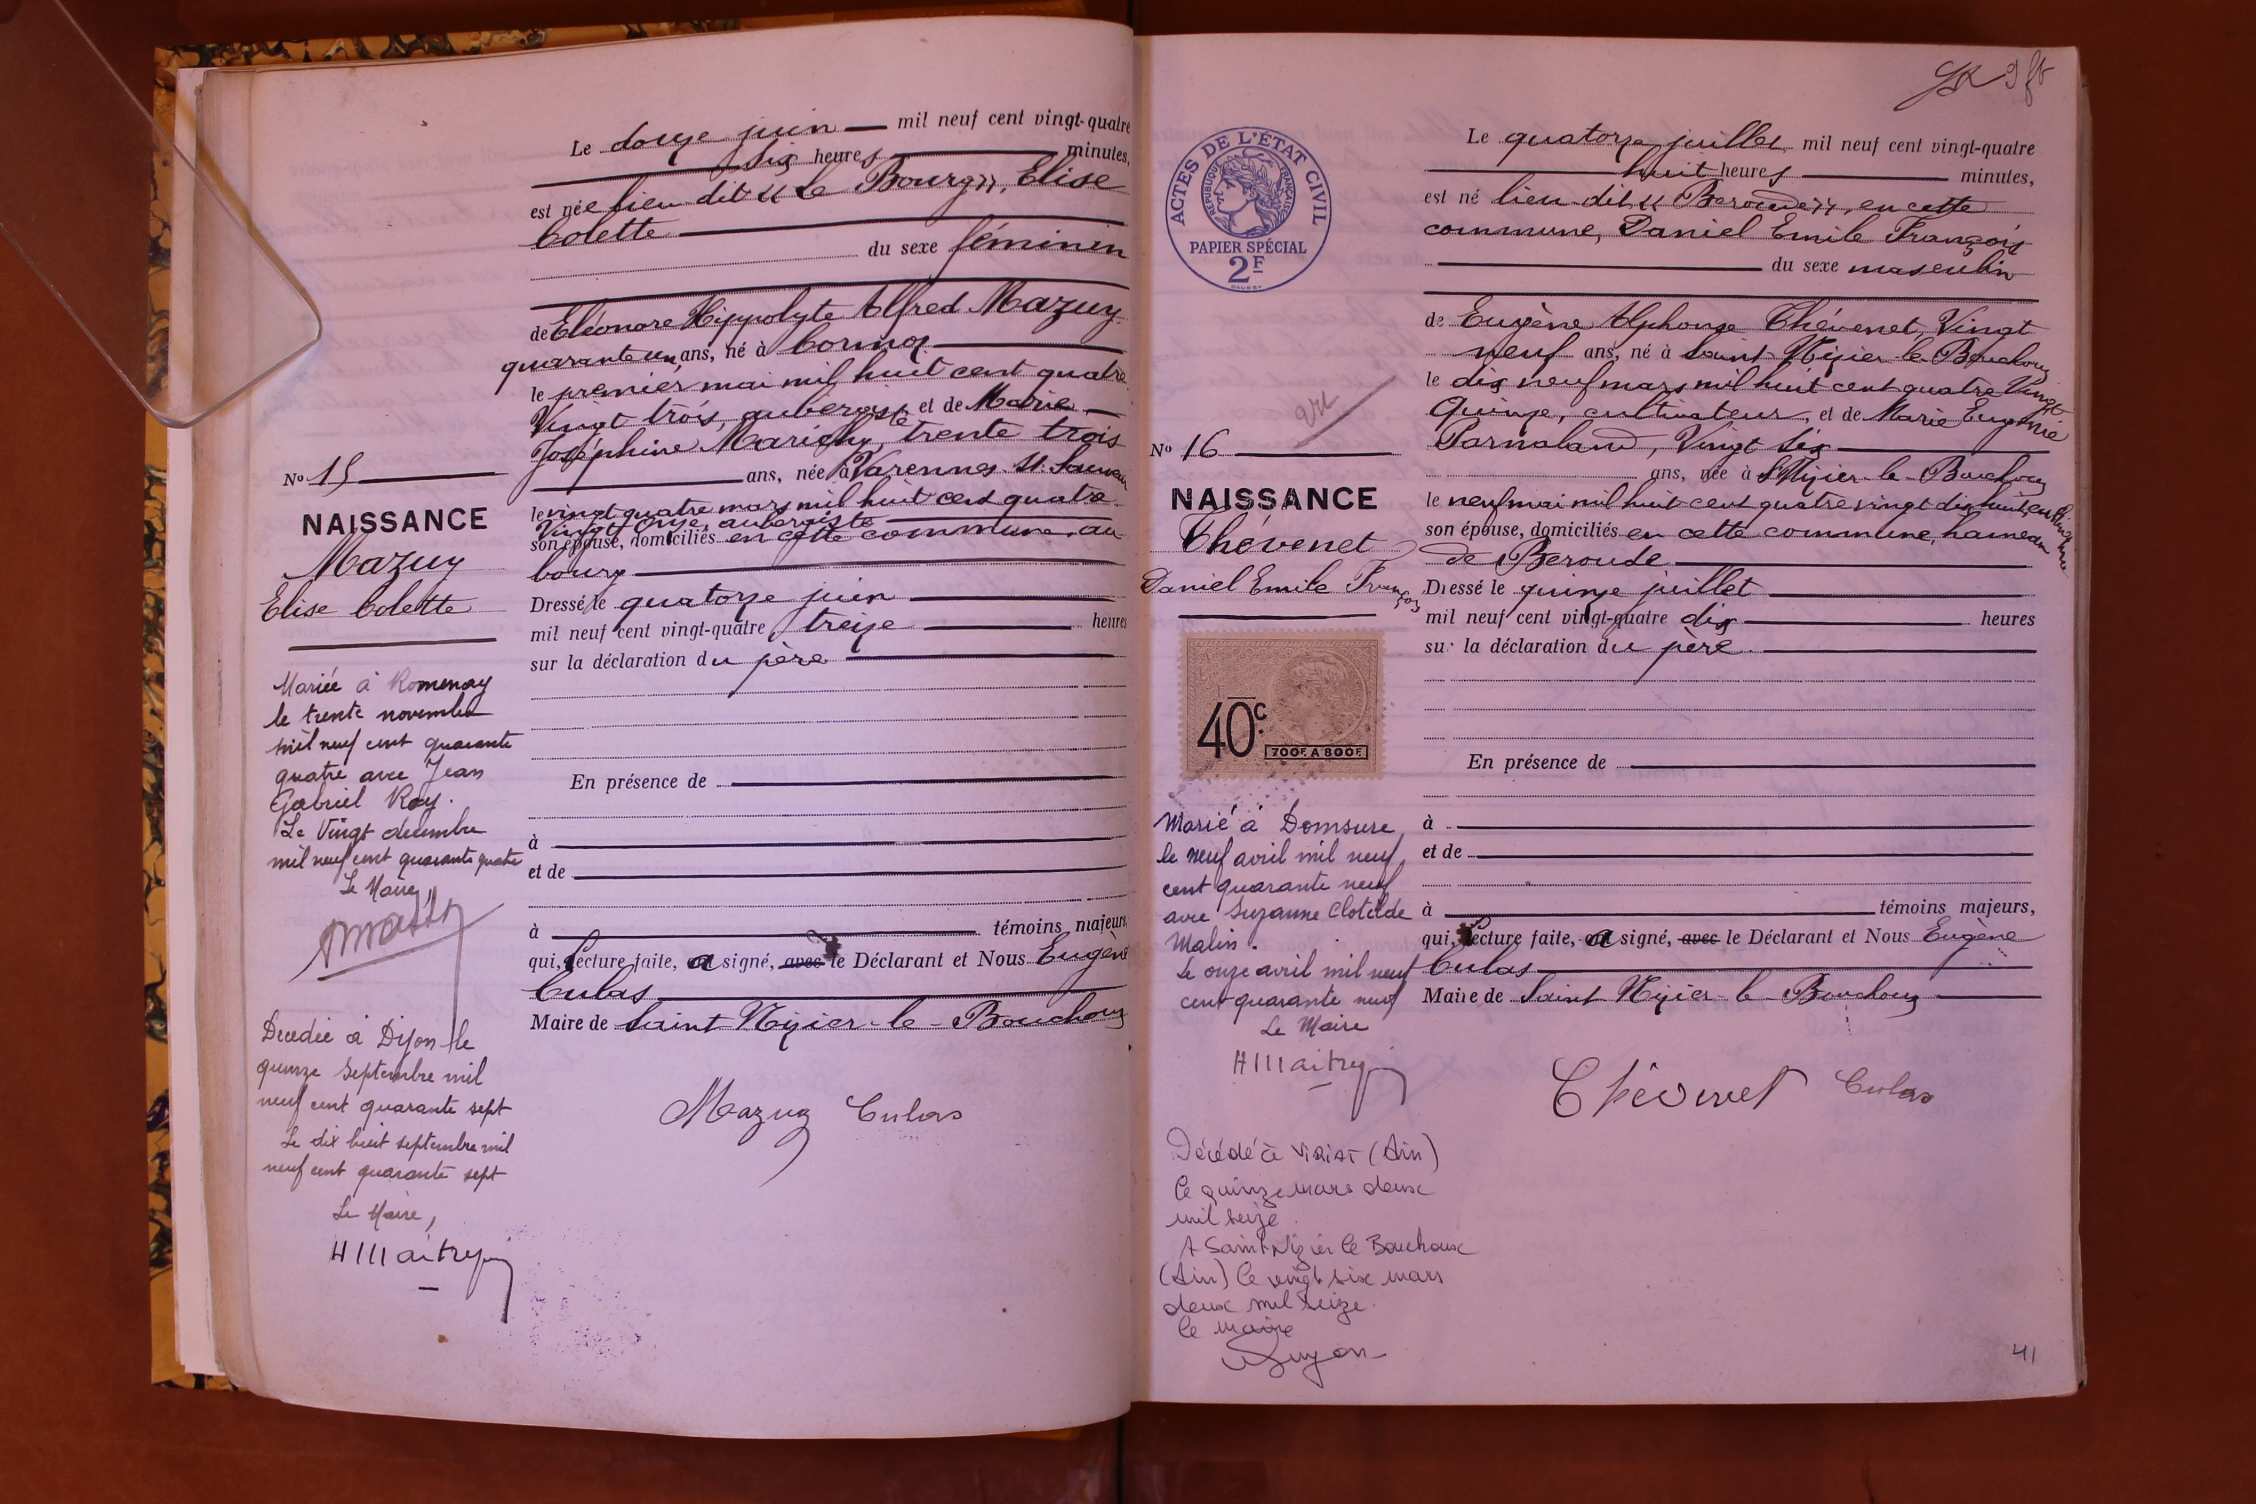 Le douze juin mil neuf cent vingt-quatre
six heures minutes,
est née lieu dit « Le Bourg », Elise
Colette
du sexe féminin
de Eléonore Hippolyte Alfred Mazuy
quarante un ans, né à Cormoz
le premier mai mil huit cent quatre
Vingt trois, aubergiste et de Marie
Joséphine Marichy, trente trois
ans, née à Varennes St. Sauveur
le vingt quatre mars mil huit cent quatre
Vingt onze, aubergiste
son épouse, domiciliés en cette commune, au
bourg
Dressé le quatorze juin
mil neuf cent vingt-quatre, treize heures
sur la déclaration du père
En présence de
à
et de
à témoins majeurs,
qui, lecture faite, a signé, avec le Déclarant et Nous Eugène
Culas
Maire de Saint Nizier-le-Bouchoux
Mazuy Culas
No 15
NAISSANCE
Mazuy
Elise Colette
Mariée à Romenay
le trente novembre
mil neuf cent quarante
quatre avec Jean
Gabriel Roy.
Le Vingt décembre
mil neuf cent quarante quatre
Le Maire,
Décédée à Dijon le
quinze septembre mil
neuf cent quarante sept
Le dix huit septembre mil
neuf cent quarante sept
Le Maire,
HMaitrejean
ACTES DE L'ÉTAT CIVIL
RÉPUBLIQUE FRANÇAISE
PAPIER SPÉCIAL
2F
Le quatorze juillet mil neuf cent vingt-quatre
huit heures minutes,
est né lieu dit « Beroude », en cette
commune, Daniel Emile François
du sexe masculin
de Eugène Alphonse Thévenet, Vingt
neuf ans, né à Saint Nizier le Bouchoux
le dix neuf mars mil huit cent quatre Vingt
Quinze, cultivateur, et de Marie Eugénie
Parnaland, Vingt six
ans, née à St Nizier-le-Bouchoux
le neuf mai mil huit cent quatre vingt dix huit, cultivatrice
son épouse, domiciliés en cette commune, hameau
de Beroude
Dressé le quinze juillet
mil neuf cent vingt-quatre dix heures
sur la déclaration du père.
En présence de
à
et de
à témoins majeurs,
qui, lecture faite, a signé, avec le Déclarant et Nous Eugène
Culas
Maire de Saint Nizier-le-Bouchoux
Thévenet Culas
No 16
NAISSANCE
Thévenet
Daniel Emile François
40c
700F. A 800F.
Marié à Domsure
le neuf avril mil neuf
cent quarante neuf
avec Suzanne Clotilde
Malin.
Le onze avril mil neuf
cent quarante neuf
Le Maire
HMaitrejean
Décédé à Viriat (Ain)
le quinze mars deux
mil seize.
A Saint Nizier le Bouchoux
(Ain) le vingt six mars
deux mil seize.
le maire
41